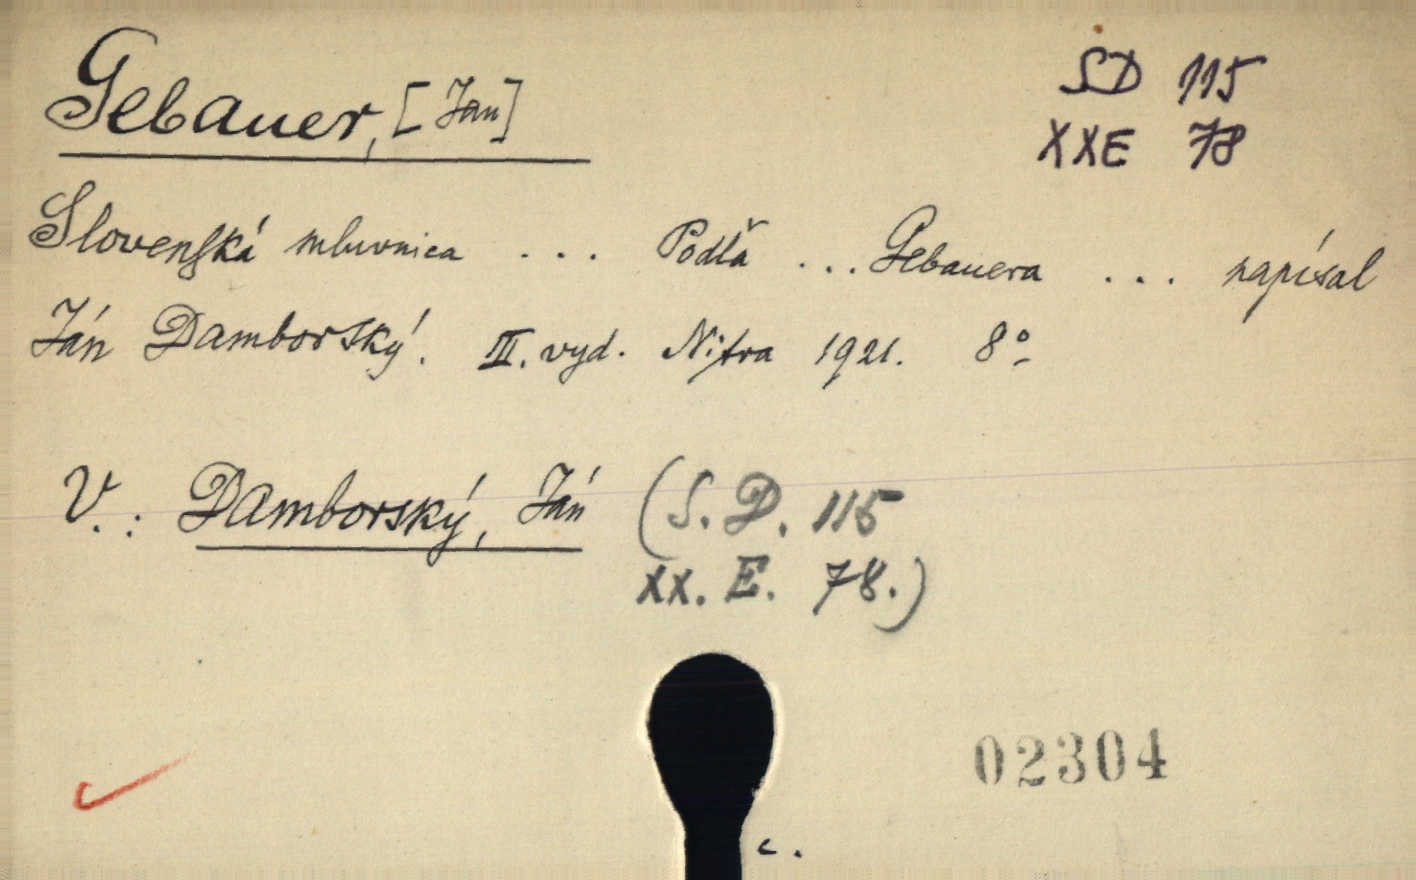 Gebauer, [Jan]
SD 115
XXE 78
Slovenská mluvnica ... Podľa ... Gebauera ... napísal
Ján Damborský. III. vyd. Nitra 1921. 8°
V.: Damborský, Ján (S. D. 115
XX. E. 78.)
02304
c.